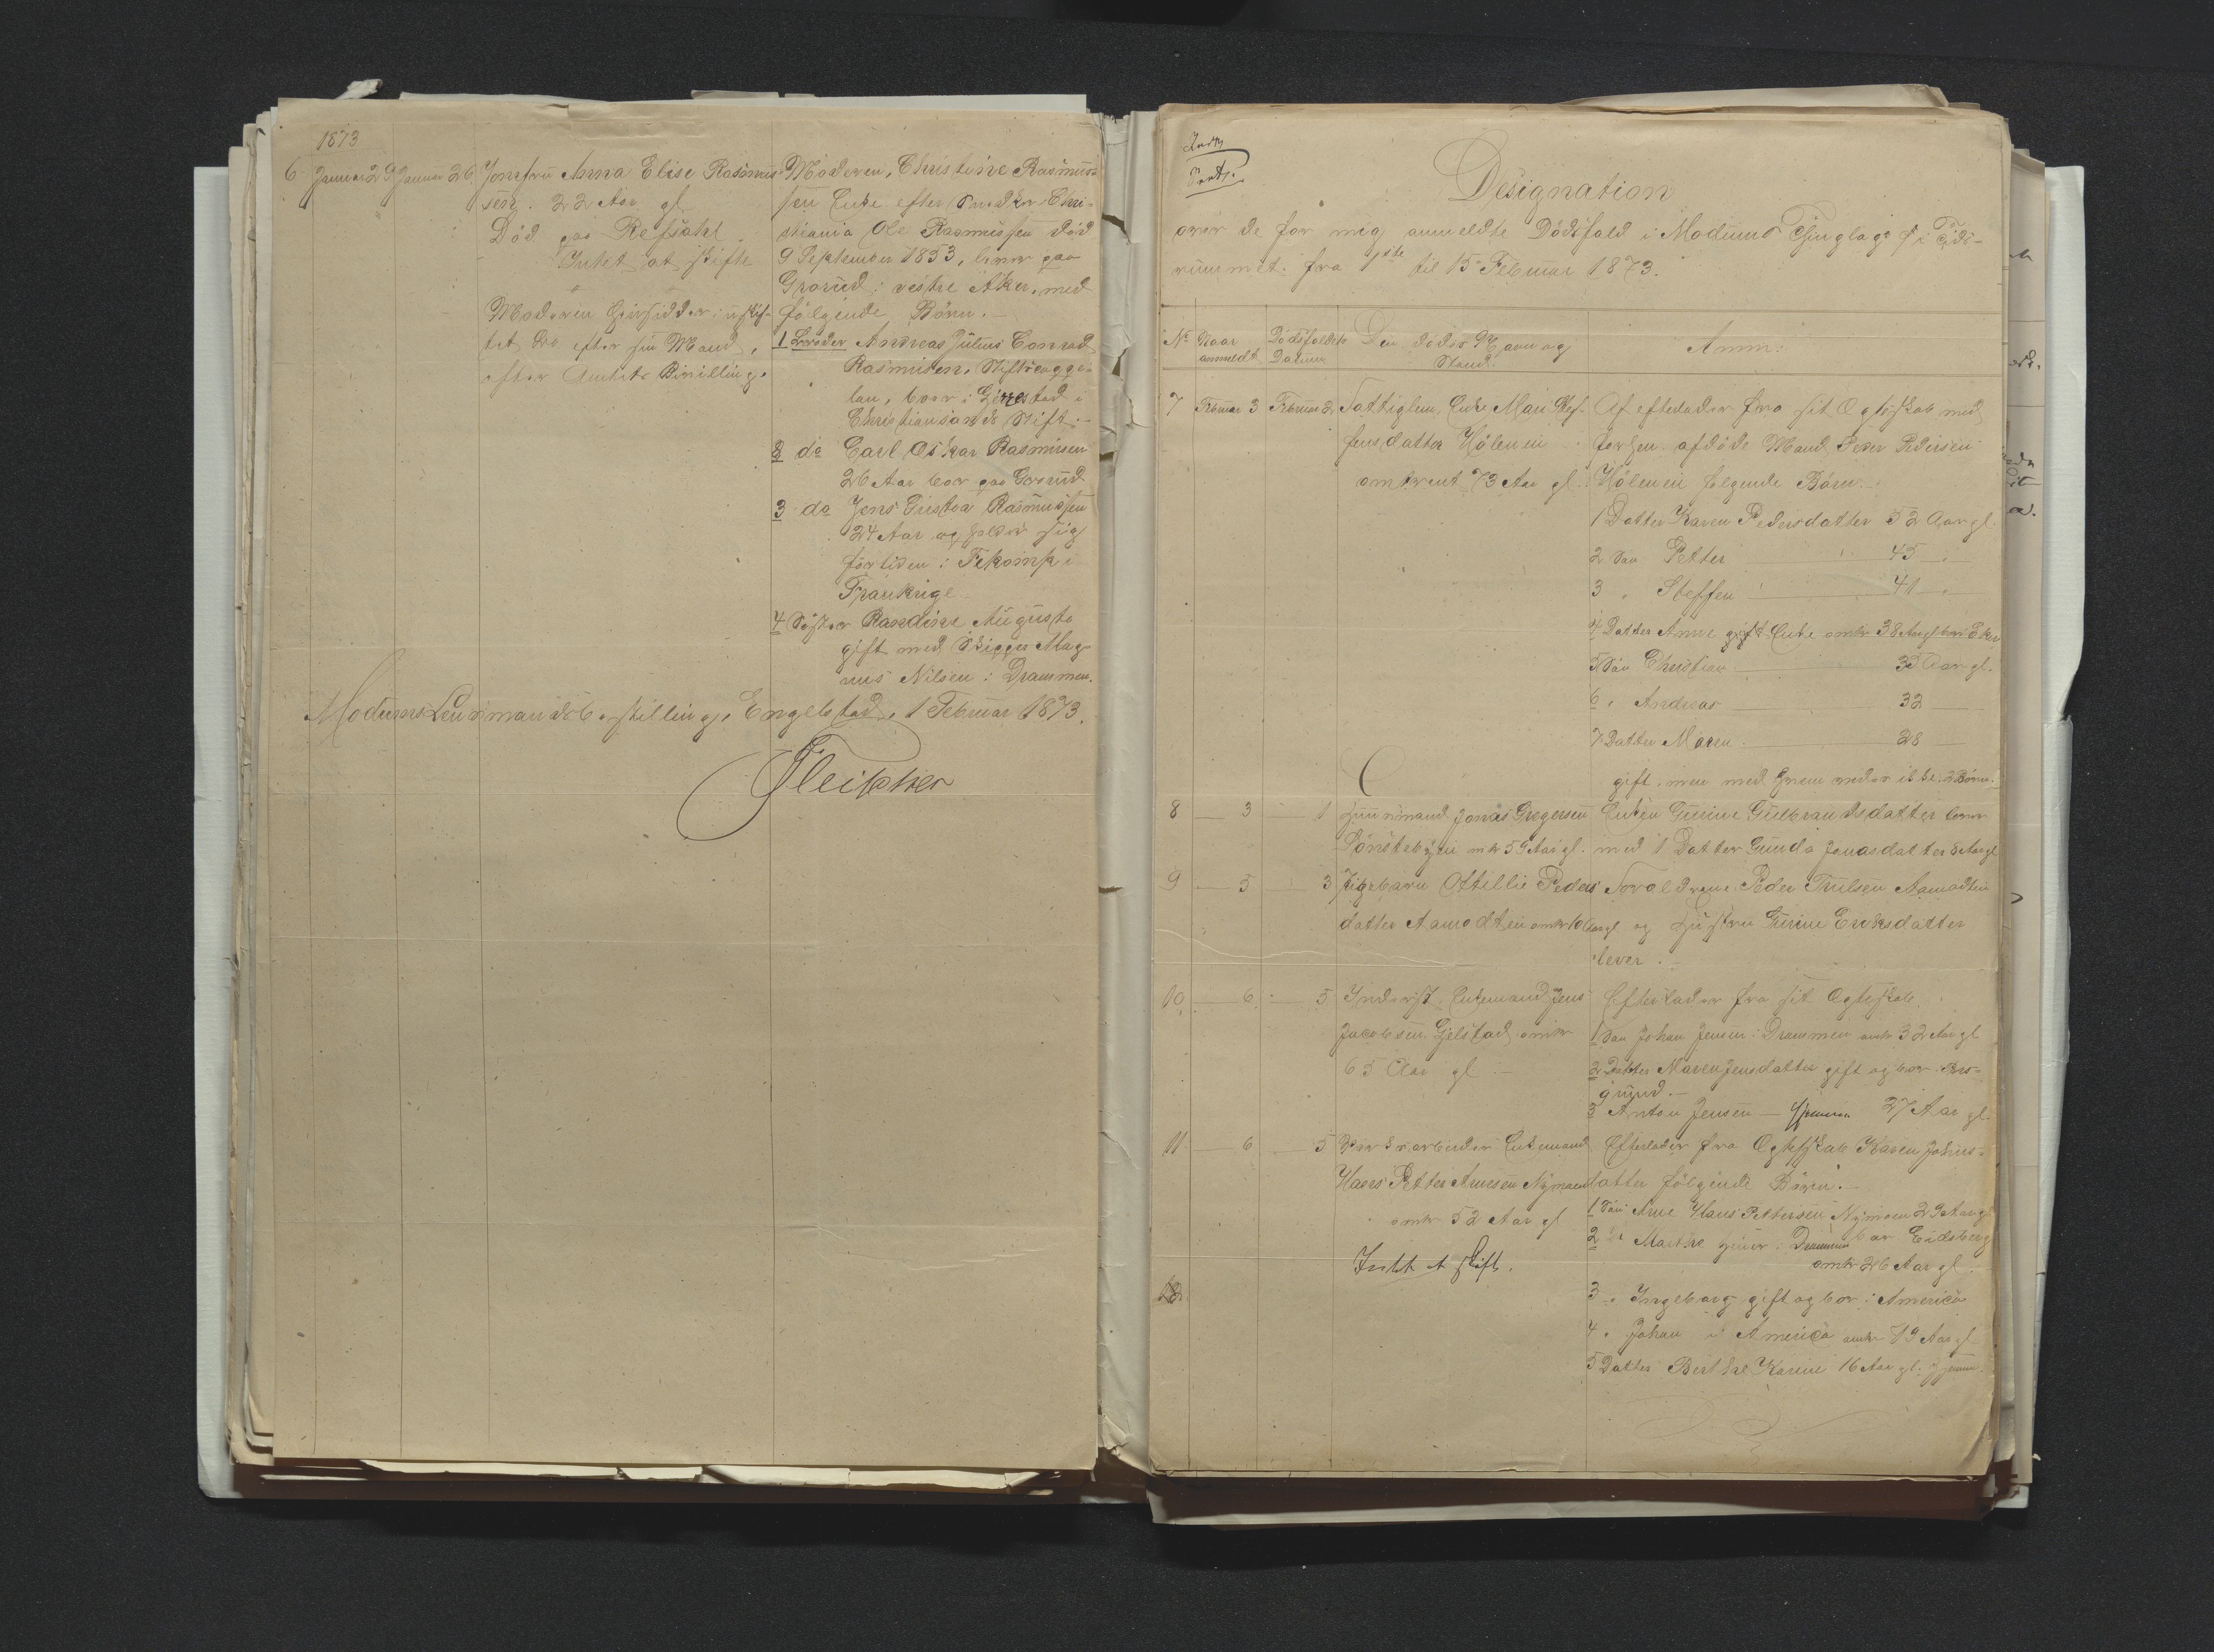 1873
6 Januar 29 Januar 26 Jomfru Anna Elise Rasmus-
sen. 22 Aar gl
Död paa Refsahl
Intet at skifte
Moderen hensidder i uskif-
tet Bo efter sin Mand,
efter Amtets Bevilling.
Moderen, Christine Rasmus-
sen Enke efter Snedker Chri-
stiania Ole Rasmussen död
9 September 1853, boer paa
Grorud i vestre Aker, med
følgende Børn.
1 Broder Andreas Julius Conrad
Rasmusen, Skifteforval-
lan, boer i Gjerrestad i
Christiansands Stift.
2 do Carl Oskar Rasmusen
26 Aar boer paa Grorud
3 do Jens Gustav Rasmussen
24 Aar og holder sig
for tiden i Fekamp i
Frankrige
4 Søster Randine Auguste
gift med Skipper Mag-
nus Nilsen i Drammen.
Modums Lensmandsbestilling, Engelstad, 1 Februar 1873.
Fleischer
Designation
over de for mig anmeldte Dødsfald i Modums Thinglag i Tids-
rummet fra 1ste til 15 Februar 1873.
No Naar anmeldt Dødsfaldets Datum Den dødes Navn og Stand. Anm:
7 Februar 3 Februar 2 Fattiglem, Enke Mari Stef-
fensdatter Hölen
omtrent 73 Aar gl.
Af efterlader fra sit Ægteskab med
forhen afdøde Mand Peder Pedersen
Hølen følgende Børn.
1 Datter Karen Pedersdatter 52 Aar gl.
2 Søn Petter 45
3 " Steffen 41
4 Datter Anne gift Enke omtr 38 Aar gl boer Eker
5 Søn Christian 35 Aar gl.
6 " Andreas 32
7 Datter Maren 28
gift, men med hvem vides ikke. 2 Børn.
8 3 1 Huusmand Jonas Gregersen
Sønstebyen omtr 59 Aar gl.
Enken Gurine Gulbrandsdatter lever
med 1 Datter Gunda Jonasdatter 8 Aar gl
9 5 3 Pigebarn Ottillie Peders
datter Aamodteie omtr 10 Aar gl
Forældrene Peder Trulsen Aamodteie
og Hustru Gurine Eriksdatter
lever.
10 6 5 Inderst Enkemand Jens
Jacobsen Gjelstad omtr
65 Aar gl
Efterlader fra sit Ægteskab
1 Søn Johan Jensen i Drammen omtr 32 Aar gl
2 Datter Maren Jensdatter gift og boer Pors-
grund.
3 Anton Jensen hjemme 27 Aar gl.
11 6 5 Værksarbeider Enkemand
Hans Petter Arnesen Nymoen
omtr 52 Aar gl
Intet at skifte.
Efterlader fra Ægteskab Karen Johns-
datter følgende Børn.
1 Søn Arne Hans Pettersen Nymoen 29 Aar gl
2 Marthe tjener i Drammen boer Eidsberg
omtr 26 Aar gl.
12
3 " Ingeborg gift og boer i America
4 " Johan i America omtr 19 Aar gl
5 Datter Berthe Karine 16 Aar gl. hjemme.